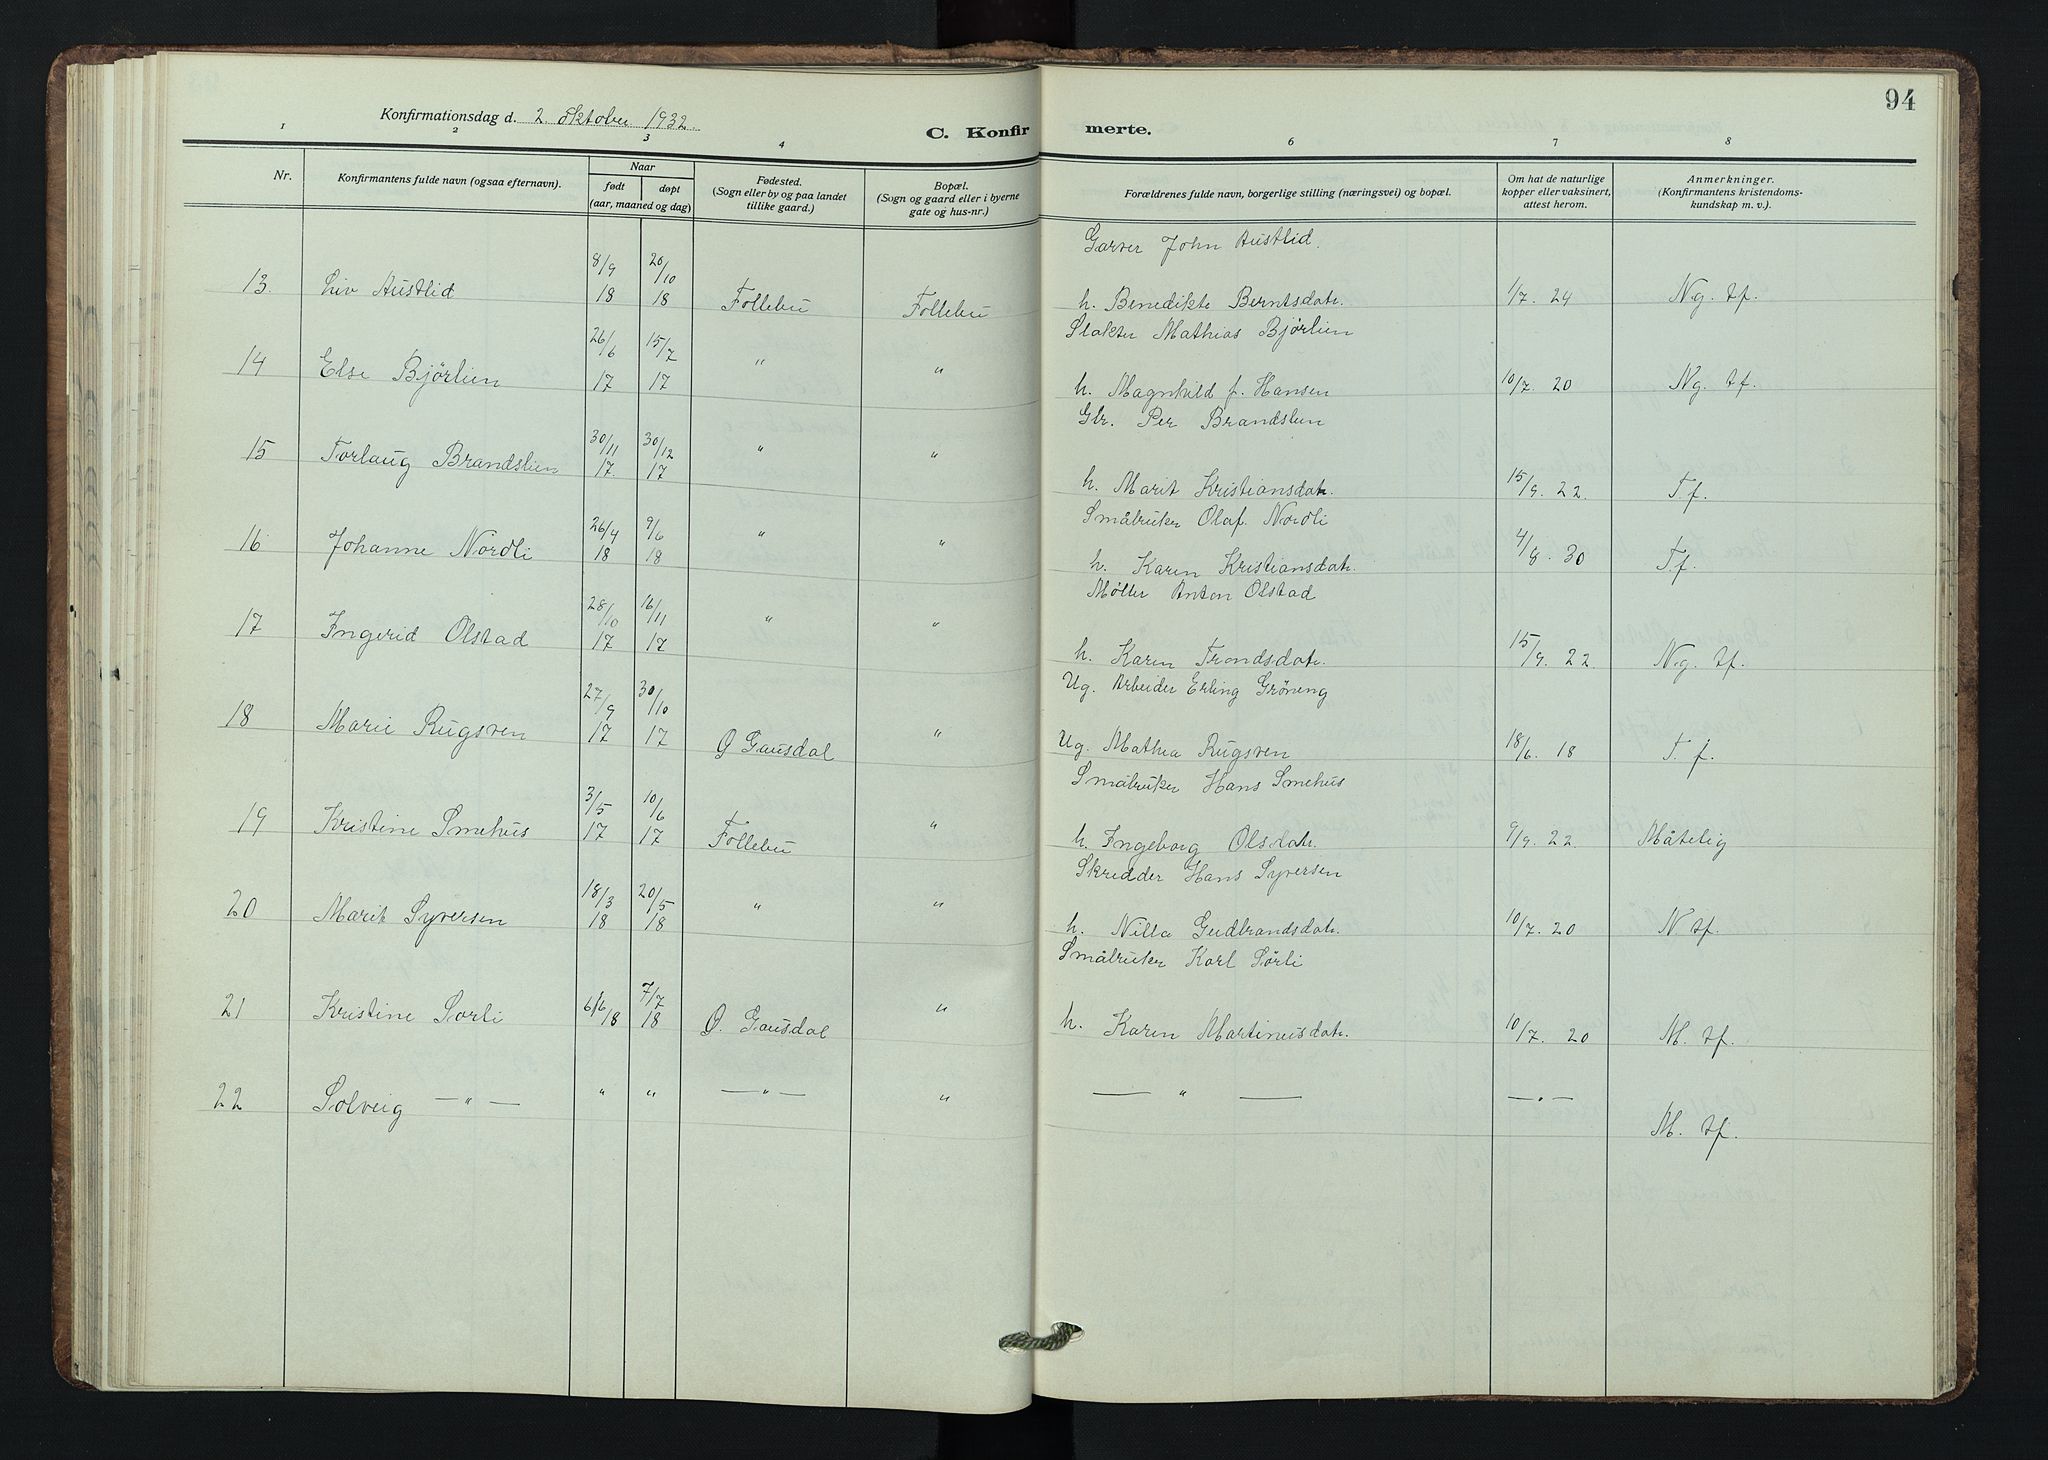 94
Konfirmationsdag d. 2. Oktober 1932.
C. Konfirmerte.
1 2 3 4 6 7 8
Nr.
Konfirmantens fulde navn (ogsaa efternavn).
Naar
født døpt
(aar, maaned og dag)
Fødested.
(Sogn eller by og paa landet
tillike gaard.)
Bopæl.
(Sogn og gaard eller i byerne
gate og hus-nr.)
Forældrenes fulde navn, borgerlige stilling (næringsvei) og bopæl.
Om hat de naturlige
kopper eller vaksinert,
attest herom.
Anmerkninger.
(Konfirmantens kristendoms-
kundskap m. v.).
Garver John Austlid.
13. Liv Austlid 8/9 18 20/10 18 Follebu Follebu h. Benedikte Berntsdatr. 1/7. 24 Ng. tf.
Slakter Mathias Bjørlien
14 Else Bjørlien 26/6 17 15/7 17 " " h. Magnhild f. Hansen 10/7. 20 Ng. tf.
Glr. Per Brandslien
15 Torlaug Brandslien 30/11 17. 30/12 17 " " h. Marit Kristiansdatr. 15/9. 22. T.f.
Småbruker Olaf Nordli
16 Johanne Nordli 26/4 18 9/6 18 " " h. Karen Kristiansdatr. 4/8. 30 T.f.
Møller Anton Olstad
17 Ingerid Olstad 28/10 17 16/11 17 " " h. Karen Trondsdatr. 15/9. 22. Ng. tf.
Ug. Arbeider Erling Grøneng
18 Marie Rugsven 27/9 17 30/10 17 Ø Gausdal " Ug. Mathea Rugsven 18/6. 18 T. f.
Småbruker Hans Smehus
19 Kristine Smehus 3/5 17 10/6 17 Follebu " h. Ingeborg Olsdatr. 9/9. 22 Måtelig
Skredder Hans Syversen
20 Marit Syversen 18/3 18 20/5 18 " " h. Nilla Gudbrandsdatr. 10/7. 20 N tf.
Småbruker Karl Sørli
21 Kristine Sørli 6/6 18 7/7 18 Ø. Gausdal " h. Karen Martinusdatr. 10/7. 20 M. tf.
22 Solveig — " — " " — " — " — " — — " — M. tf.